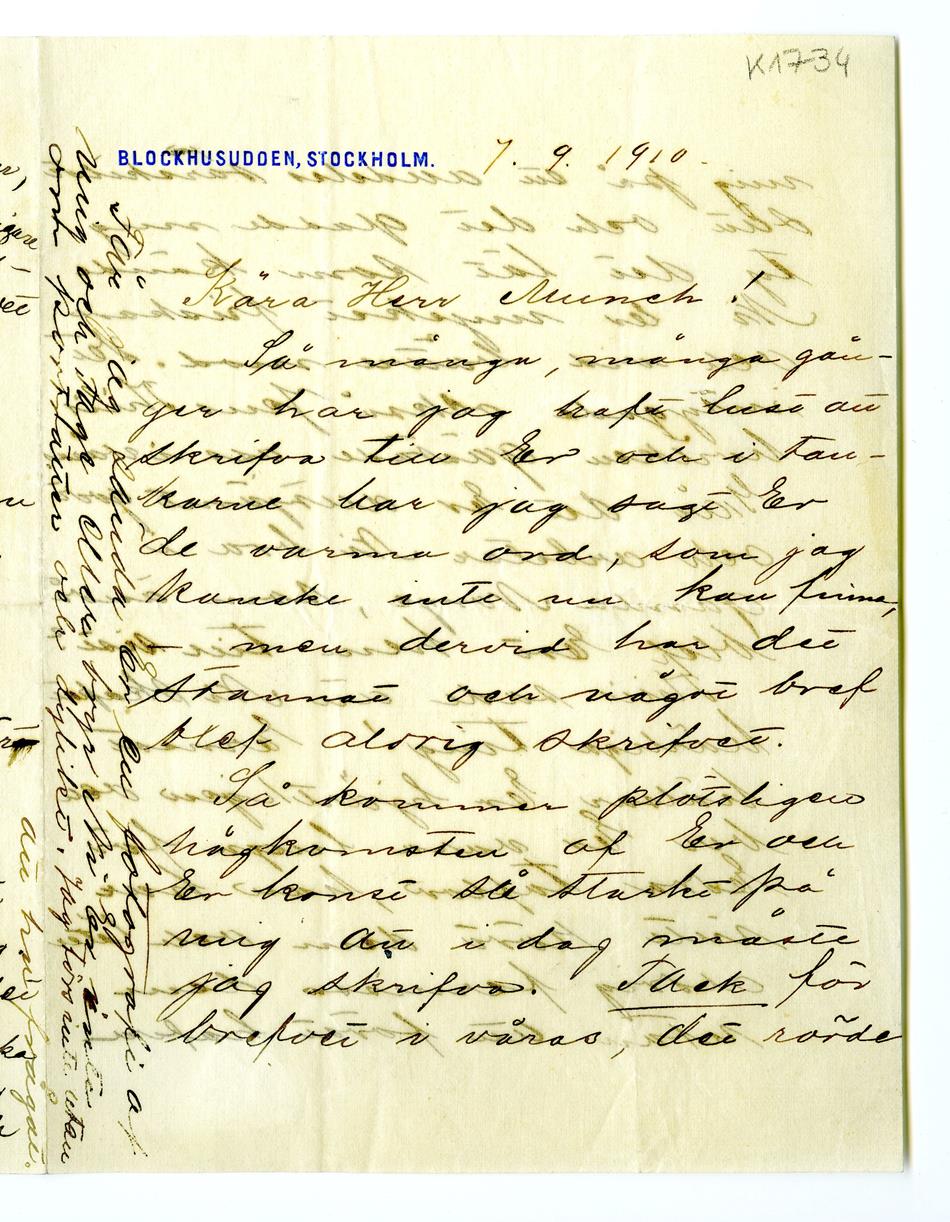 K1734
BLOCKHUSUDDEN, STOCKHOLM. 7. 9. 1910.
Kära Herr Munch!
Så många, många gån-
ger har jag haft lust att
skrifva till Er och i tan-
karne har jag sagt Er
de varma ord, som jag
kanske inte nu kan finna,
– men dervid har det
stannat och något bref
blef aldrig skrifvet.
Så kommer plötsligen
hågkomsten af Er och
Er konst så starkt på
mig att i dag måste
jag skrifva. Tack för
brefvet i våras, det rörde
Får jag sända Er en fotografi af
mig och Tage Olle
om porträtter och dylikt. Jag törs inte utan
att ha frågat.